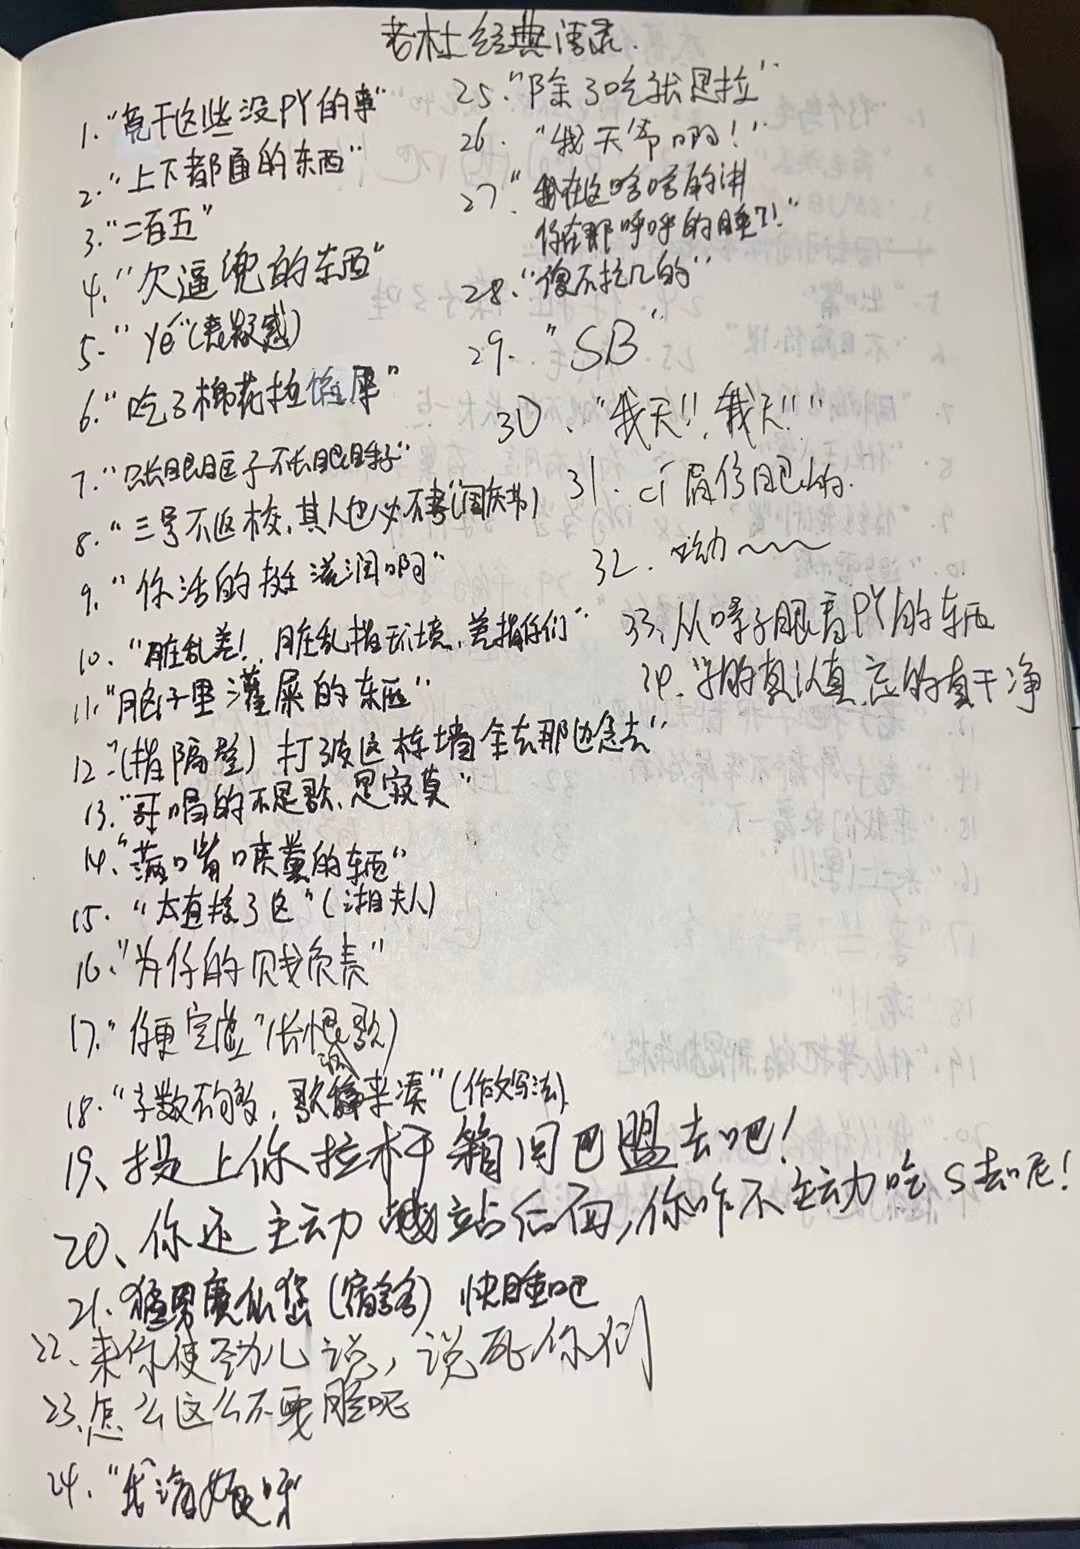 老杜经典语录.
1."竟干这些没PY的事"
2."上下都通的东西"
3."二百五"
4."欠逼兜的东西"
5."yě"(表疑惑)
6."吃了棉花拉线屎"
7."只长眼眶子不长眼睛子"
8."三号不返校,其人也必不孝"(国庆节)
9."你活的挺滋润啊"
10."脏乱差!脏乱指环境,差指你们"
11."脑子里灌屎的东西"
12."(指隔壁)打破这栋墙全去那边念去"
13."哥唱的不是歌,是寂莫"
14."满嘴喷粪的东西"
15."太直接了这"(湘夫人)
16."为你的贱负责"
17."你更空虚"(长恨歌)
18."字数不够,歌词来凑"(作文写法)
19、提上你拉杆箱回巴盟去吧!
20、你还主动站后面,你咋不主动吃S去呢!
21.猛男 (宿舍名) 快睡吧
22.来你使劲儿说,说死你们
23.怎么这么不要脸呢
24."我 呀"
25."除了吃就是拉"
26."我天爷啊!"
27."我在这哈哈的讲
你在那呼呼的睡了!"
28."傻不拉几的"
29."SB"
30."我天!!,我天!!"
31. 你 的.
32. 哟~~~
33.从嗓子眼看PY的东西
34.学的真认真,忘的真干净